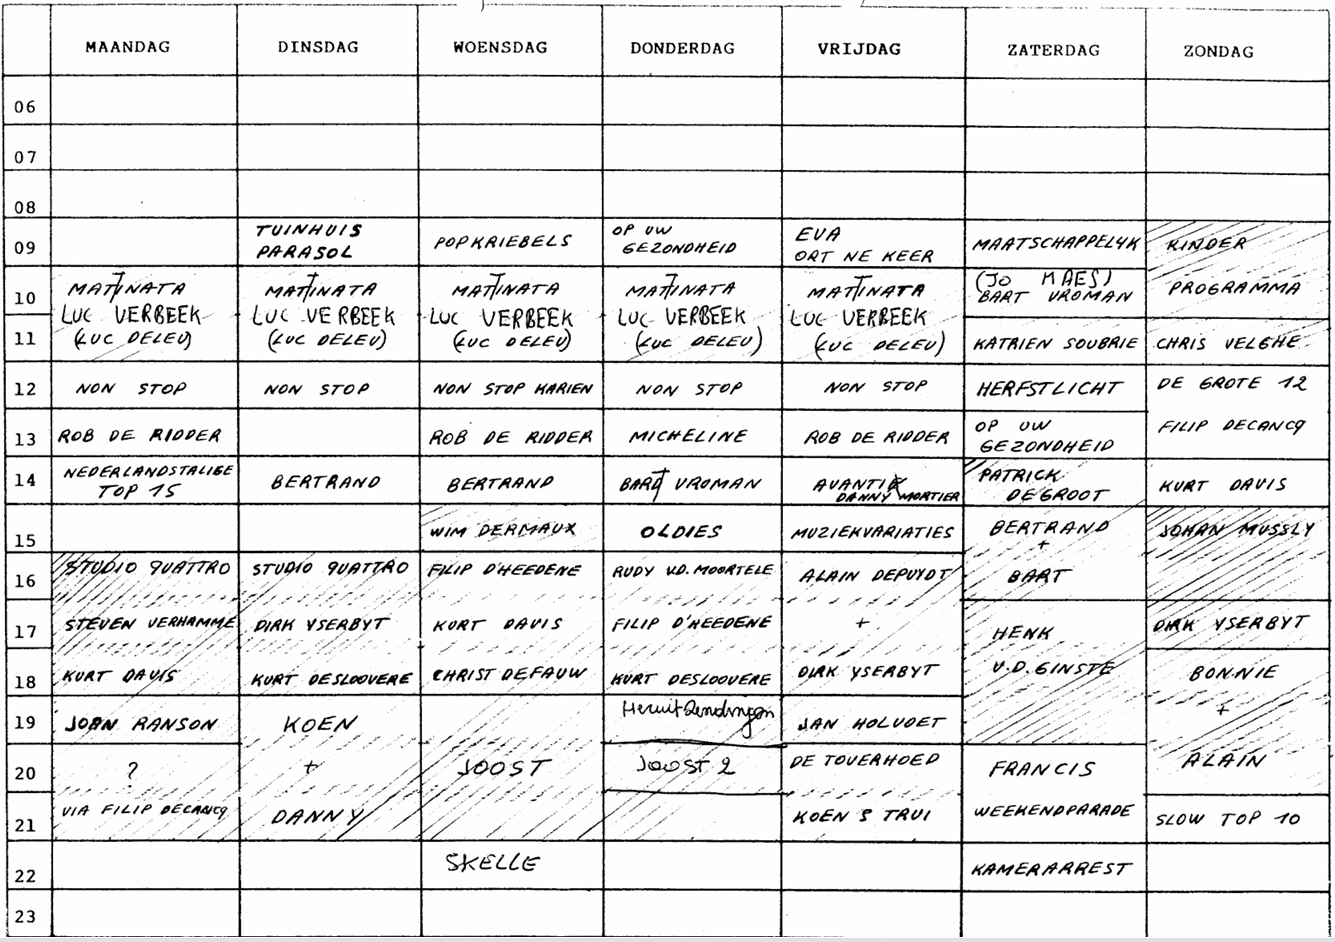 MAANDAG DINSDAG WOENSDAG DONDERDAG VRIJDAG ZATERDAG ZONDAG
06
07
08
TUINHUIS OP UW EVA
09 PARASOL POPKRIEBELS GEZONDHEID DAT NE KEER MAATSCHAPPELYK KINDER
(JO MAES)
10 MATTINATA MATTINATA MATTINATA MATTINATA MATTINATA BART VROMAN PROGRAMMA
LUC VERBEEK LUC VERBEEK LUC VERBEEK LUC VERBEEK LUC VERBEEK
11 (LUC DELEU) (LUC DELEU) (LUC DELEU) (LUC DELEU) (LUC DELEU) KATRIEN SOUBRIE CHRIS VELGHE
12 NON STOP NON STOP NON STOP KARIEN NON STOP NON STOP HERFSTLICHT DE GROTE 12
OP UW
13 ROB DE RIDDER ROB DE RIDDER MICHELINE ROB DE RIDDER GEZONDHEID FILIP DECANCQ
NEDERLANDSTALIGE PATRICK
14 TOP 15 BERTRAND BERTRAND BART VROMAN AVANTI DANNY MORTIER DEGROOT KURT DAVIS
15 WIM DERMAUX OLDIES MUZIEKVARIATIES BERTRAND JOHAN MUSSLY
+
16 STUDIO QUATTRO STUDIO QUATTRO FILIP D'HEEDENE RUDY V.D. MOORTELE ALAIN DEPUYDT BART
17 STEVEN VERHAMME DIRK YSERBYT KURT DAVIS FILIP D'HEEDENE + HENK DIRK YSERBYT
18 KURT DAVIS KURT DESLOOVERE CHRIST DEFAUW KURT DESLOOVERE DIRK YSERBYT V.D.GINSTE BONNIE
19 JOHN RANSON KOEN Heruitzendingen JAN HOLVOET +
20 ? + JOOST JOOST 2 DE TOVERHOED FRANCIS ALAIN
21 VIA FILIP DECANCQ DANNY KOEN & TRUI WEEKENDPARADE SLOW TOP 10
22 SKELLE KAMERARREST
23